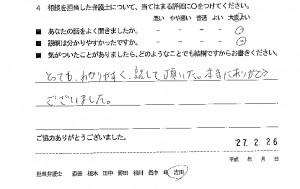 4 相談を担当した弁護士について、当てはまる評価に○をつけてください。
悪い やや悪い 普通 よい 大変よい
■ あなたの話をよく聞きましたか。
■ 説明は分かりやすかったですか。
■ 気がついたことがありましたら、どのようなことでも結構ですからお書きください。
とても、わかりやすく、話して頂いた。本当にありがとう
ございました。
ご協力ありがとうございました。
27. 2. 26
平成 年 月 日
担当弁護士 田中